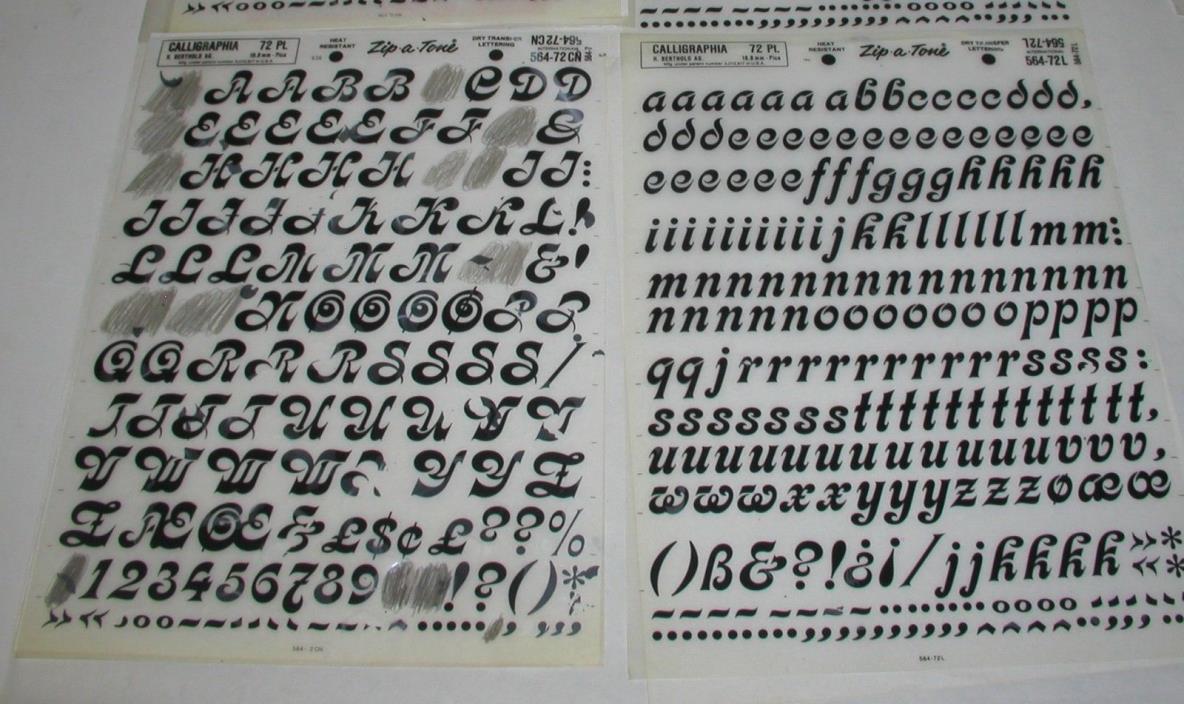 CALLIGRAPHIA 72 Pt.
H. BERTHOLD AG. 18.8 mm - Pica
HEAT RESISTANT
Zip-a-Tone
DRY TRANSFER LETTERING
564-72CN
564-72CN
A A B B C D D
E E E E E F F G
H H H H I I :
I I J J J K K K L !
L L L M M M & '
N O O O Ø P P
Q Q R R R S S S S /
T T T T U U U V V
V W W W Y Y Z
Z Æ Œ & £ $ ¢ £ ? ? %
1 2 3 4 5 6 7 8 9 ! ? ( ) *
CALLIGRAPHIA 72 Pt.
H. BERTHOLD AG. 18.8 mm - Pica
HEAT RESISTANT
Zip-a-Tone
DRY TRANSFER LETTERING
564-72L
564-72L
aaaaaaabbccccddd,
dddeeeeeeeeeeeeee
eeeeeefffggghhhhh
iiiiiiiiiijkkllllllmm:
mnnnnnnnnnnnnnn
nnnnnooooooopppp
qqjrrrrrrrrrrrssss:
sssssssttttttttttttt,
uuuuuuuuuuuuvvv,
wwwxxyyyzzzøææ
()ß&?!¿¡/jjkkkk»*
«*
564-72L